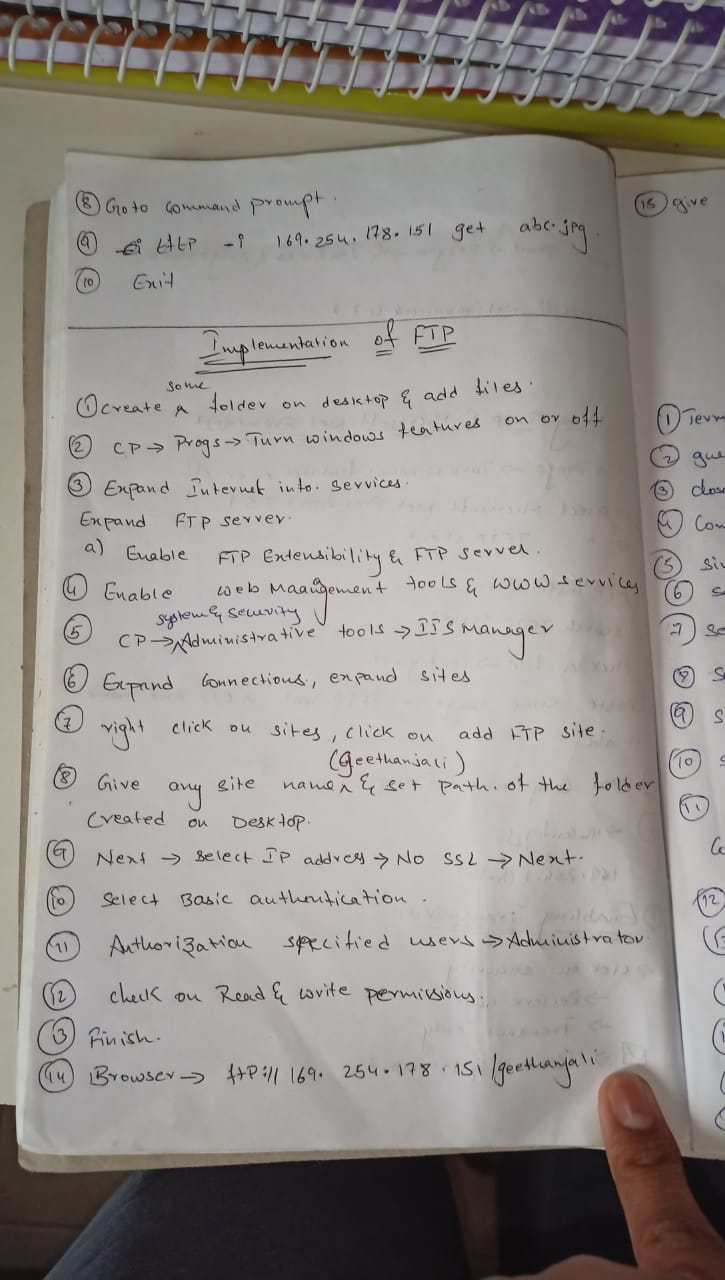 ⑧ Goto command prompt.
⑨ tftp -i 169.254.178.151 get abc.jpg.
⑩ Exit
Implementation of FTP
some
① Create a folder on desktop & add files.
② CP → Progs → Turn windows features on or off
③ Expand Internet info. services.
Expand FTP server.
a) Enable FTP Extensibility & FTP server.
④ Enable web Maangement tools & WWW services
system & security
⑤ CP → Administrative tools → IIS Manager
⑥ Expand Connections, expand sites
⑦ right click on sites, click on add FTP site.
(geethanjali)
⑧ Give any site name & set path. of the folder
Created on Desktop.
⑨ Next → select IP address → No SSL → Next.
⑩ Select Basic authentication.
⑪ Authorization specified users → Administrator
⑫ check on Read & write permissions.
⑬ Finish.
⑭ Browser → ftp:// 169.254.178.151/geethanjali
⑮ give
①
②
③
④
⑤
⑥
⑦
⑧
⑨
⑩
⑪
⑫